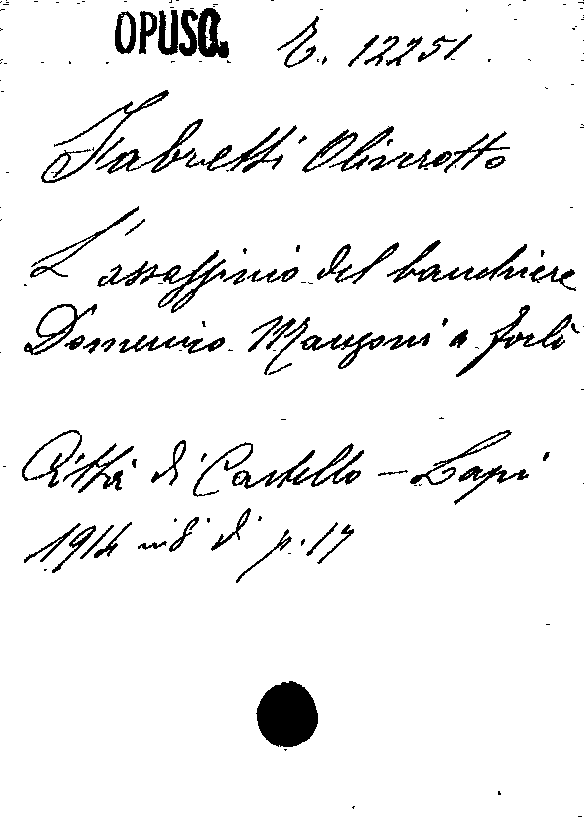 OPUSC. E. 12251
Fabretti Oliverotto
L'assassinio del banchiere
Domenico Mangoni a Forlì
Città di Castello - Lapi
1914 in 8 di p. 17